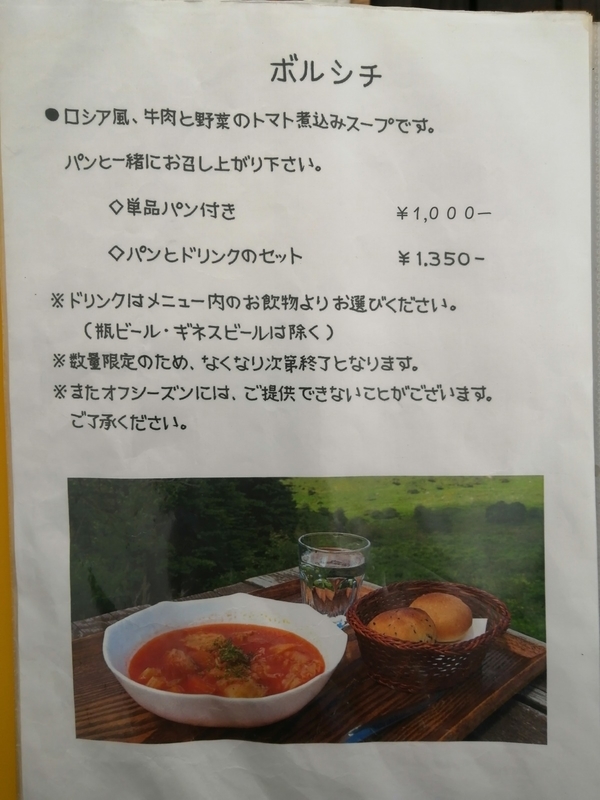 ボルシチ
●ロシア風、牛肉と野菜のトマト煮込みスープです。
パンと一緒にお召し上がり下さい。
◇単品パン付き ¥1,000ー
◇パンとドリンクのセット ¥1,350-
※ドリンクはメニュー内のお飲物よりお選びください。
(瓶ビール・ギネスビールは除く)
※数量限定のため、なくなり次第終了となります。
※またオフシーズンには、ご提供できないことがございます。
ご了承ください。